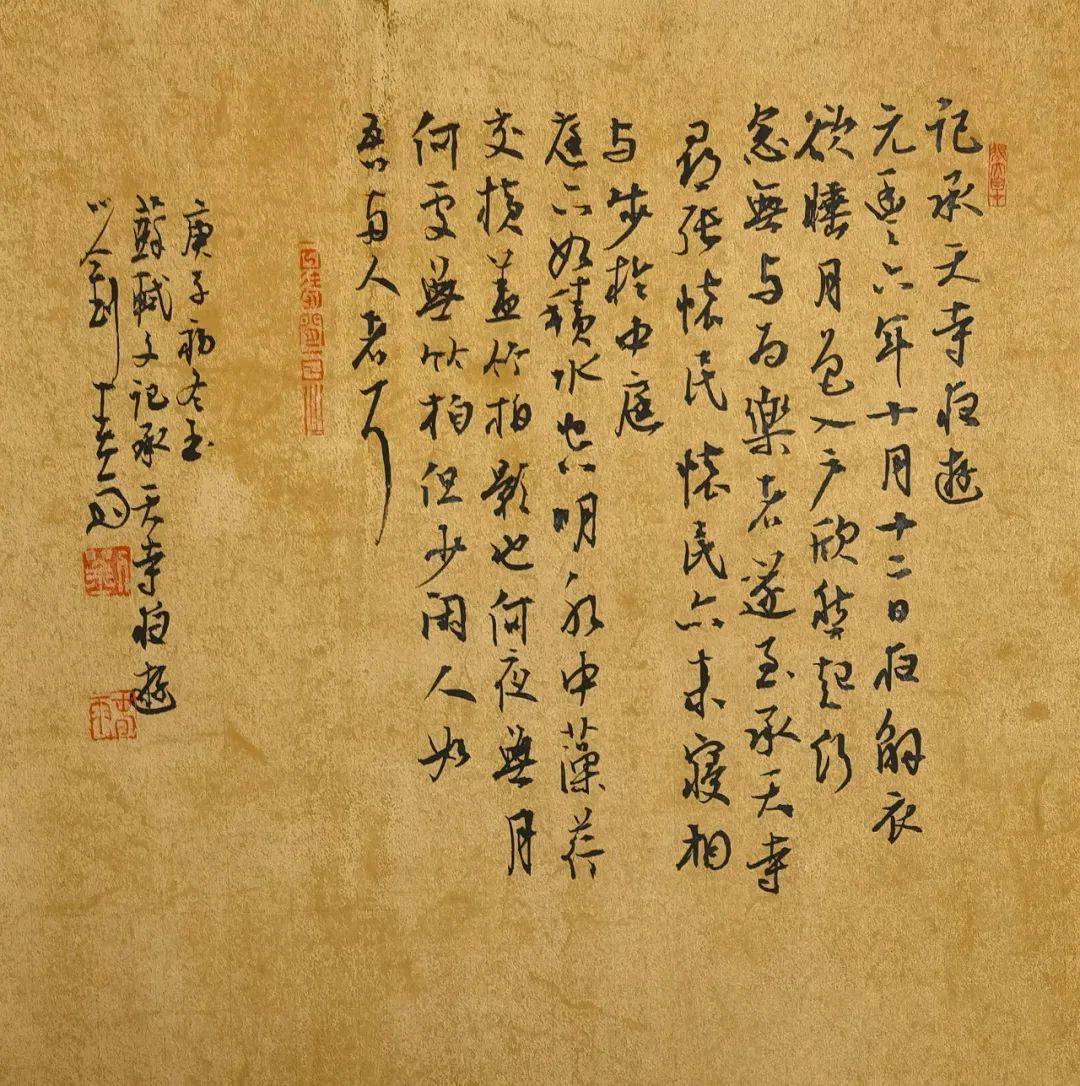 记承天寺夜遊
元豐六年十月十二日夜解衣
欲睡月色入户欣然起行
念無与为樂者遂至承天寺
尋張懷民懷民亦未寢相
与步於中庭
庭下如積水空明水中藻荇
交横蓋竹柏影也何夜無月
何處無竹柏但少閑人如
吾两人者耳
庚子初冬
蘇軾文记承天寺夜遊